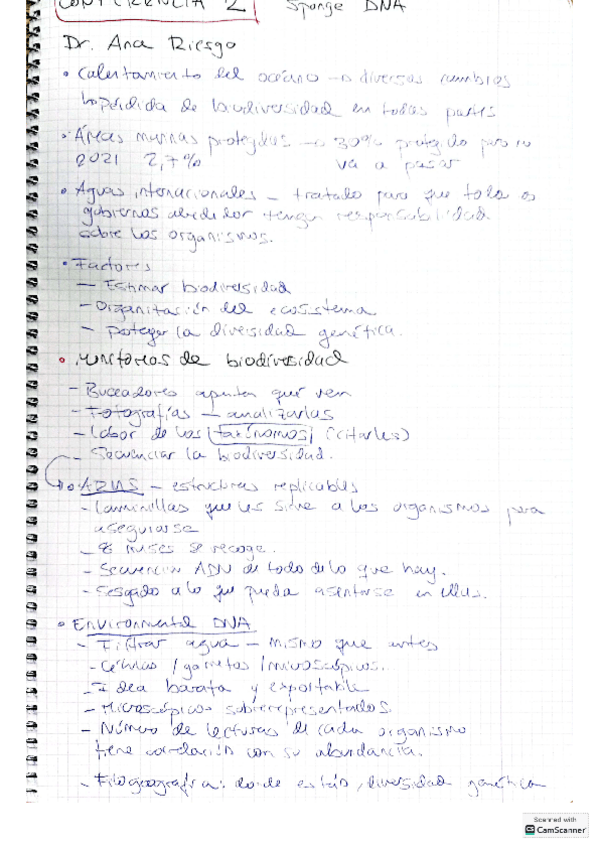 CONFERENCIA 2 Sponge DNA
Dr. Ana Riesgo
• Calentamiento del océano → diversos cambios
↳ pérdida de biodiversidad en todas partes
• Áreas marinas protegidas → 30% protegido pero no
2021 2,7% va a pasar
• Aguas internacionales – tratado para que todos
gobiernos alrededor tengan responsabilidad
sobre los organismos.
• Factores
– Estimar biodiversidad
– Organización del ecosistema
– Proteger la diversidad genética.
• Monitoreos de biodiversidad
– Buceadores apuntan qué ven
– Fotografías – analizarlas
– Labor de los taxónomos (citarles)
– Secuenciar la biodiversidad.
• ARMS – estructuras replicables
– Laminillas que les sirve a los organismos para
asegurarse
– meses se recoge.
– Secuencian ADN de todo de lo que hay.
– Sesgado a lo que pueda asentarse en ellas.
• Environmental DNA
– Filtrar agua – mismo que antes
– Células / gametos / microscópicos.
– Idea barata y exportable
– Microscópicos sobrerepresentados.
– Número de lecturas de cada organismo
tiene correlación con su abundancia.
– Filogeografía: donde están, diversidad genética
Scanned with
CamScanner